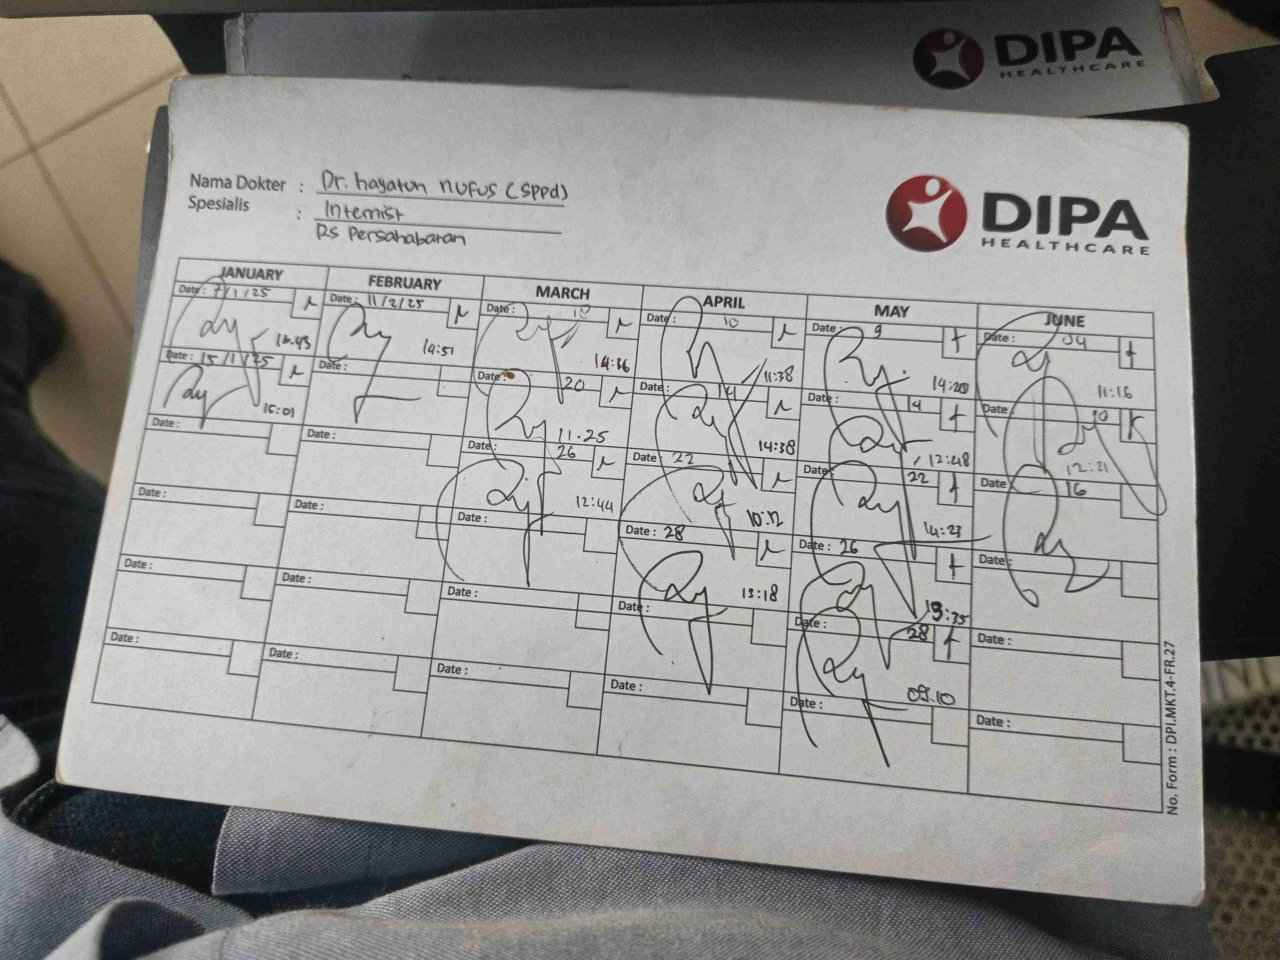 DIPA
HEALTHCARE
DIPA
HEALTHCARE
Nama Dokter : Dr. hayatun nufus (SPPd)
Spesialis : Internist
RS Persahabatan
JANUARY FEBRUARY MARCH APRIL MAY JUNE
Date : 7/1/25 Date : 11/2/25 Date : 18 Date : 10 Date : 9 Date : 04
14:51 14:36 11:38 14:20 11:16
Date : 15/1/25 Date : Date : 20 Date : 14 Date : 14 Date : 10
10:01 11.25 14:38 12:48 12:21
Date : Date : Date : 26 Date : 22 Date : 22 Date : 16
12:44 10:12 14:23
Date : Date : Date : Date : 28 Date : 26 Date :
13:18 13:35
Date : Date : Date : Date : Date : 28 Date :
09.10
Date : Date : Date : Date : Date : Date :
No. Form : DPI.MKT.4-FR.27